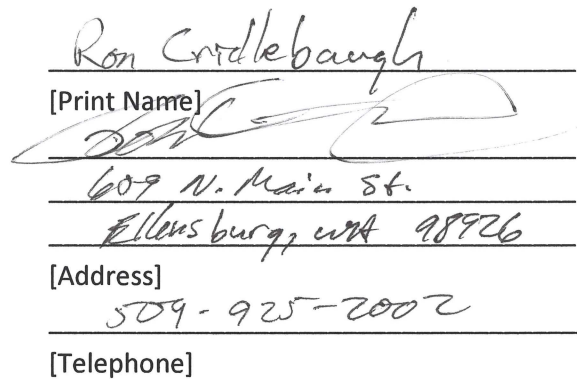 Ron Cridlebaugh
[Print Name]
609 N. Main St.
Ellensburg, WA 98926
[Address]
509-925-2002
[Telephone]